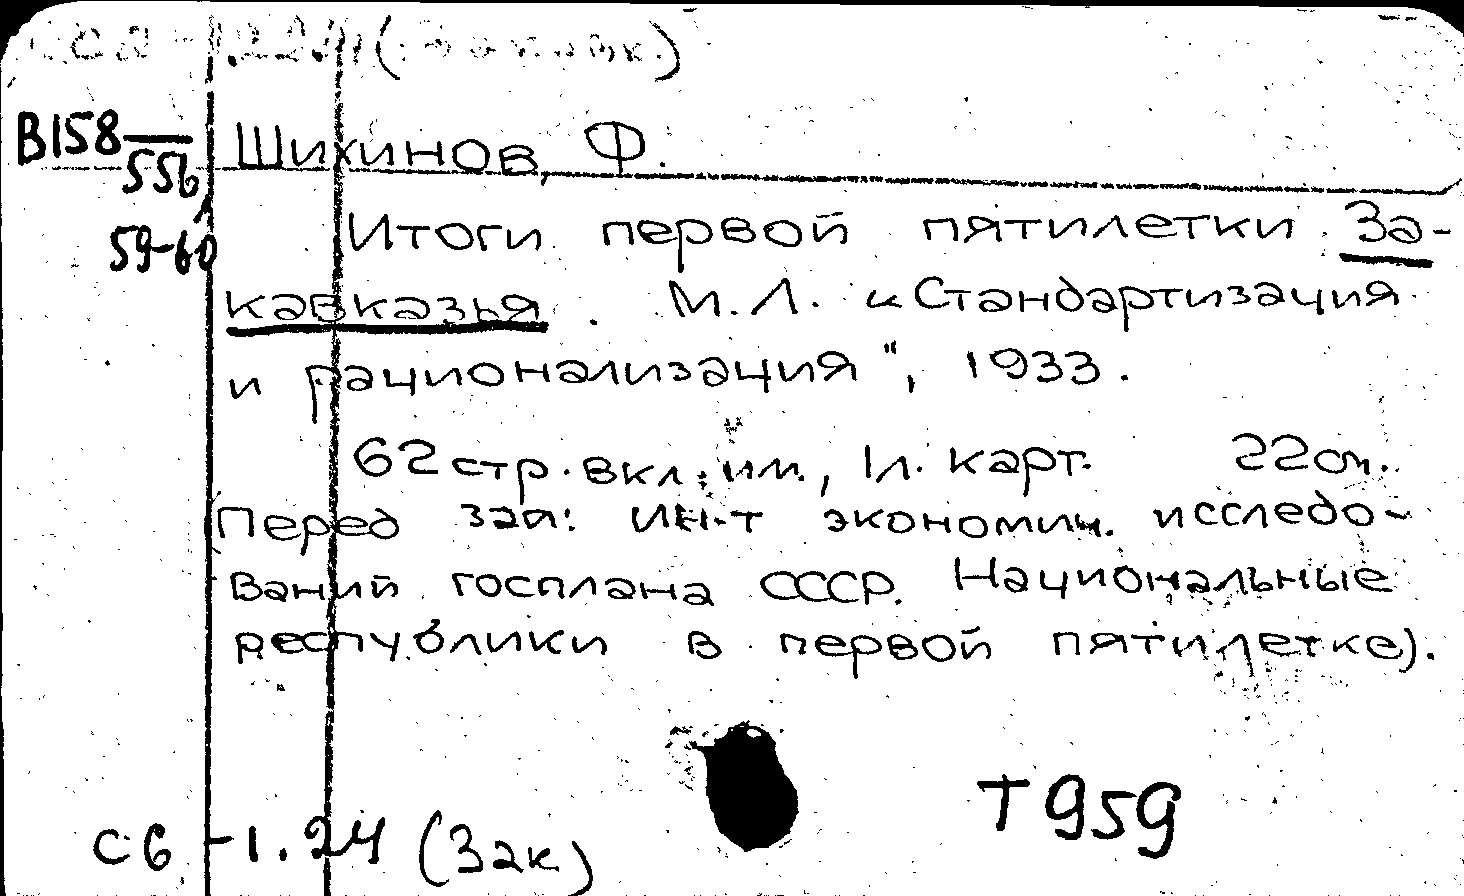 В158
556,
59-60
Шихинов, Ф.
Итоги первой пятилетки За-
кавказья. М.Л. „Стандартизация
и рационализация", 1933.
62 стр. вкл. илл., 1 л. карт. 22 см.
(Перед загл: Ин-т экономич. исследо-
ваний госплана СССР. Национальные
республики в первой пятилетке).
Т959
С6 -1.24 (Зак)